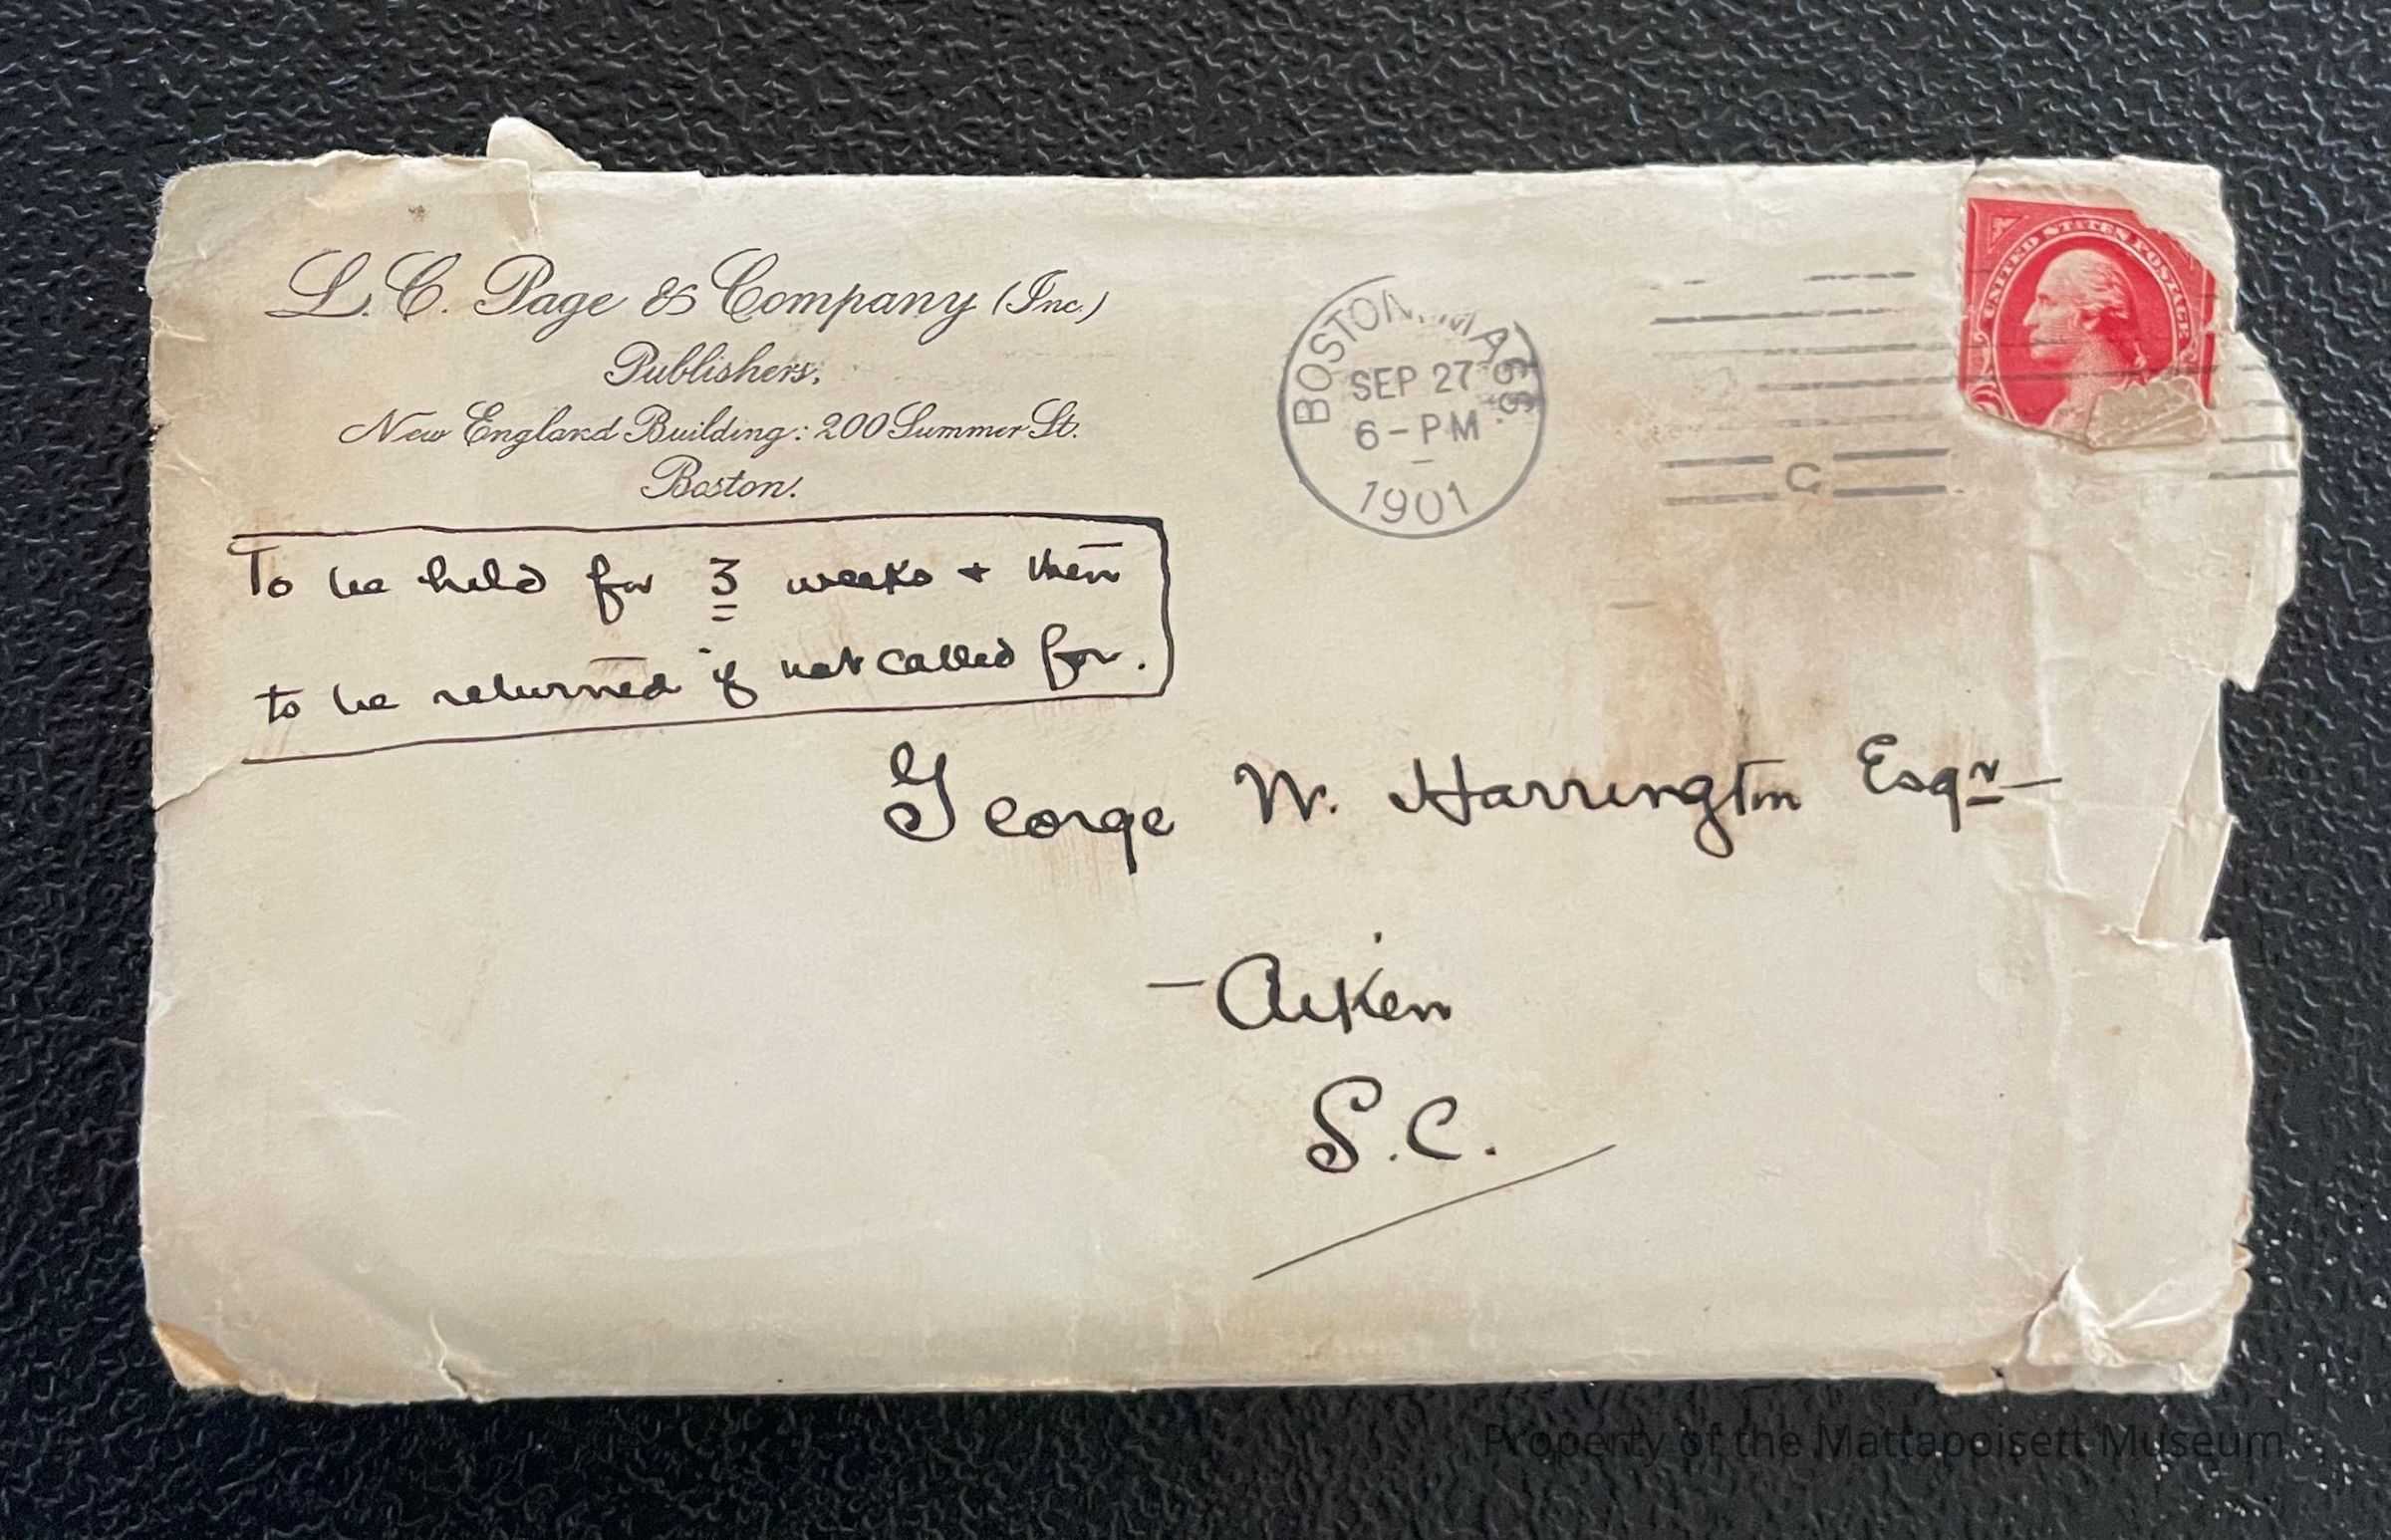 L. C. Page & Company (Inc.)
Publishers,
New England Building: 200 Summer St.
Boston.
BOSTON, MASS.
SEP 27
6-PM
1901
C
UNITED STATES POSTAGE
To be held for 3 weeks + then
to be returned if not called for.
George W. Harrington Esqr
- Aiken
S.C.
Property of the Mattapoisett Museum